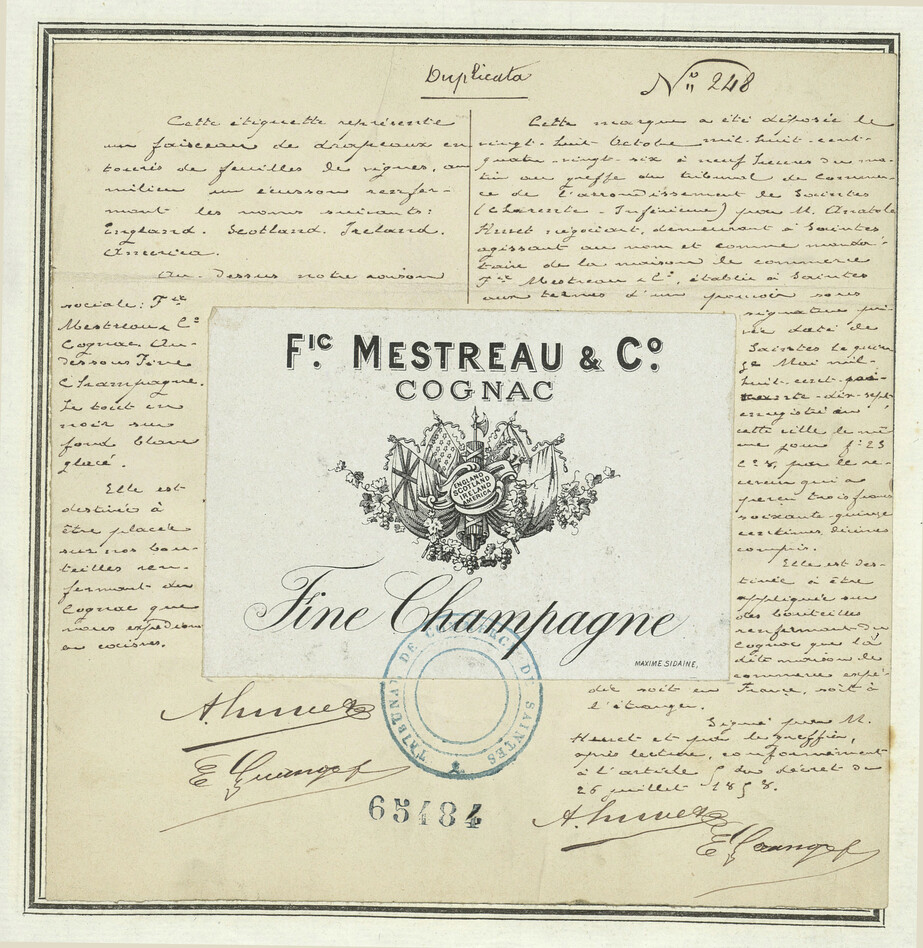 Duplicata
N° 248
Cette étiquette représente
un faisceau de drapeaux en
tourés de feuilles de vignes, au
milieu un écusson renfer-
mant les noms suivants:
England. Scotland. Ireland.
America.
Au-dessus notre raison
sociale: Fic
Mestreau & Co
Cognac Au-
dessous Fine
Champagne.
Le tout en
noir sur
fond blanc
glacé.
Elle est
destinée à
être placée
sur nos bou-
teilles ren-
fermant du
Cognac que
nous expédions
en caisses.
Cette marque a été déposée le
vingt-huit Octobre mil-huit-cent-
quatre-vingt-six à neuf heures du ma-
tin au greffe du tribunal de Commer-
ce de l'arrondissement de Saintes
(Charente-Inférieure) par M. Anatole
Huret négociant, demeurant à Saintes
agissant au nom et comme manda-
taire de la maison de commerce
Fic Mestreau & Co, établie à Saintes
aux termes d'un pouvoir sous
signature pri-
vé daté de
Saintes le quin-
ze Mai mil-
huit-cent-soi-
xante-dix-sept
enregistré en
cette ville le mê-
me jour fo 25
c 8, par le re-
ceveur qui a
perçu trois francs
soixante-quinze
centimes, décimes
compris.
Elle est des-
tinée à être
appliquée sur
des bouteilles
renfermant du
Cognac que la
dite maison de
commerce expé-
die soit en France, soit à
l'étranger.
Signé par M.
Huret et par le greffier,
après lecture, conformément
à l'article 5 du décret du
26 juillet 1858.
Fic. MESTREAU & Co.
COGNAC
ENGLAND
SCOTLAND
IRELAND
AMERICA
Fine Champagne
MAXIME SIDAINE,
TRIBUNAL DE COMMERCE DE SAINTES
65484